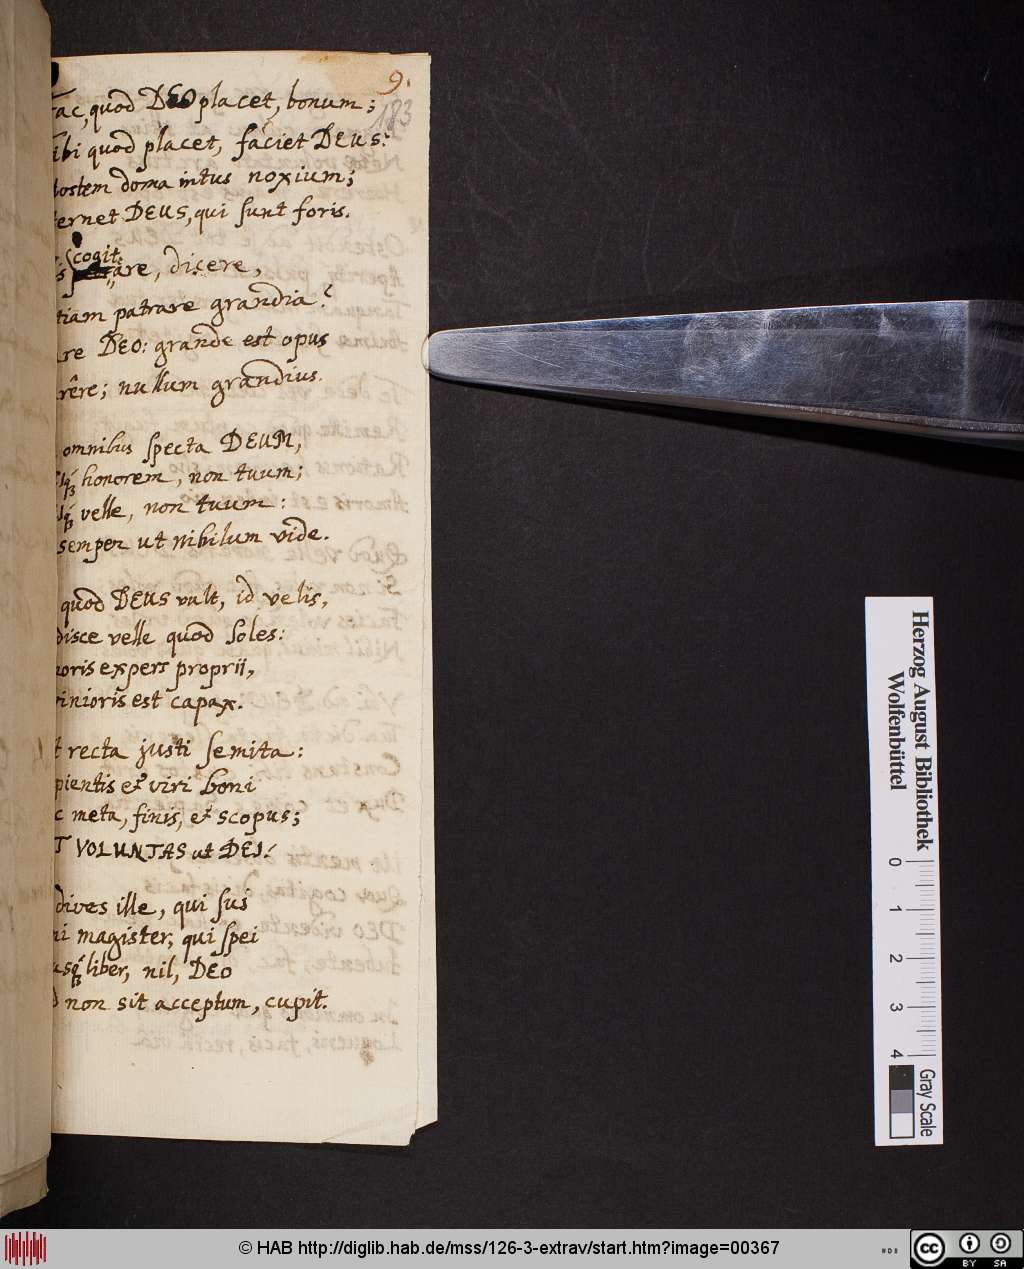 9.
183
ac, quod DEO placet, bonum;
ibi quod placet, faciet DEUS.
ostem doma intus noxium;
ernet DEUS, qui sunt foris.
cogit
is are, dicere,
tiam patrare grandia?
re DEO: grande est opus
rêre; nullum grandius.
omnibus specta DEUM,
q́; honorem, non tuum;
q́; velle, non tuum:
semper ut nihilum vide.
quod DEUS vult, id velis,
disce velle quod soles:
oris expers proprii,
vinioris est capax.
t recta justi semita:
pientis et viri boni
c meta, finis, et scopus;
T VOLUNTAS ut DEI.
dives ille, qui sui
ni magister, qui spei
usq́; liber, nil, DEO
d non sit acceptum, cupit.
Herzog August Bibliothek
Wolfenbüttel
0 1 2 3 4
Gray Scale
© HAB http://diglib.hab.de/mss/126-3-extrav/start.htm?image=00367
cc BY SA